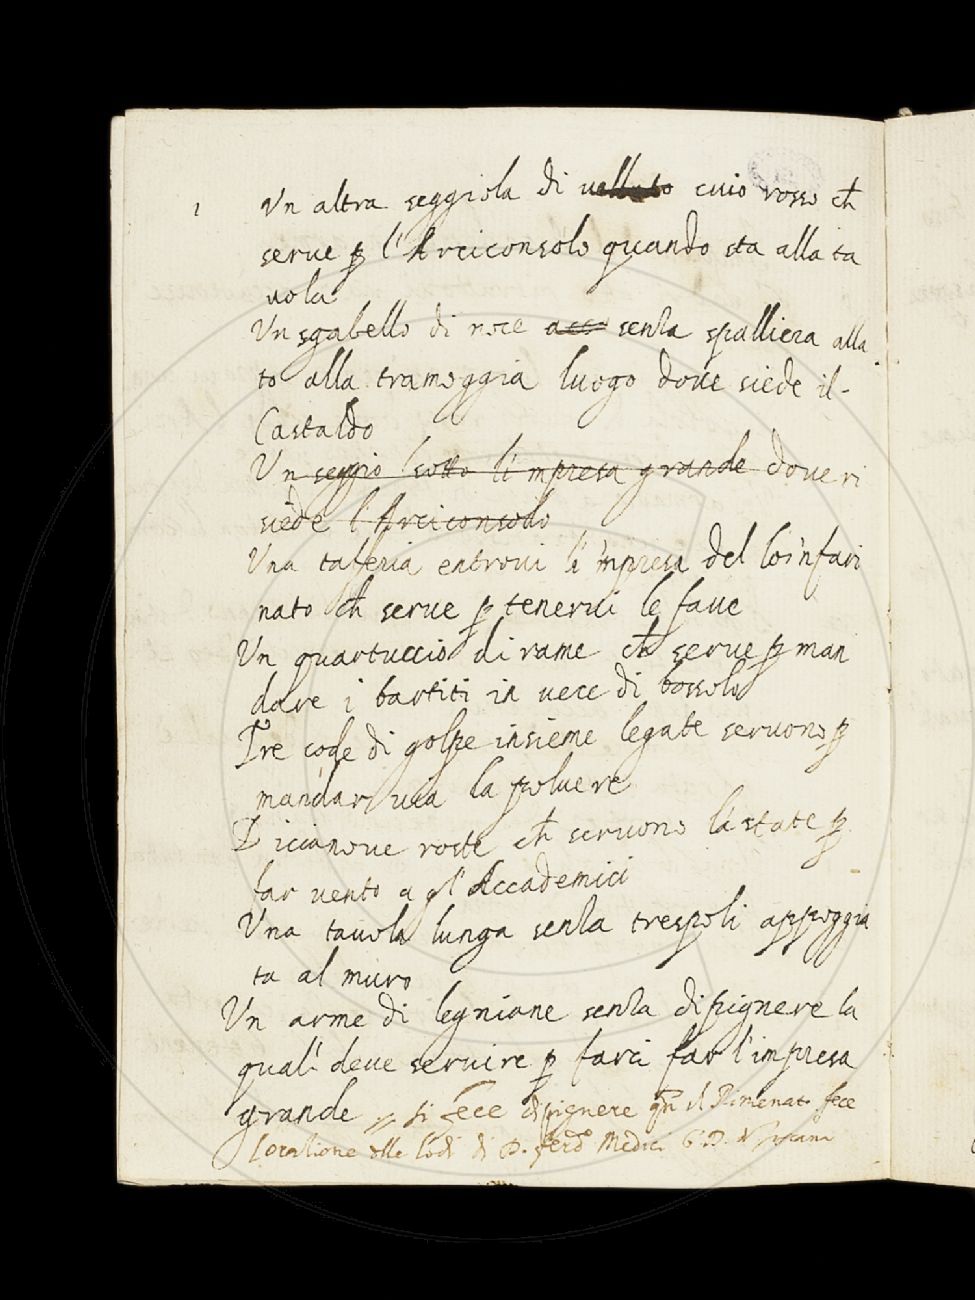 1 Un altra seggiola di velluto cuio rosso ch̃
serue p̱ l'Arciconsolo quando sta alla ta
uola
Un sgabello di noce acco senza spalliera alla
to alla tramoggia luogo doue siede il-
Castaldo
Un seggio sotto l'impresa grande doue ri
siede l'Arciconsolo
Una taferia entroui l'impresa del lo'nfari
nato ch̃ serue p̱ tenerui le faue
Un quartuccio di rame ch̃ serue p̱ man
dare i partiti in uece di bossolo
Tre code di golpe insieme legate seruono p̱
mandar uia la poluere
Diccianoue roste ch̃ seruono la state p̱
far uento a gl'Accademici
Una tauola lunga senza trespoli appoggia
ta al muro
Un arme di legniane senza dipignere la
qual' deue seruire p̱ farci far l'impresa
grande si fece dipignere qñ il Rimenato fece
l'oratione delle lodi di D. Ferdo Medici G. D. di Toscana